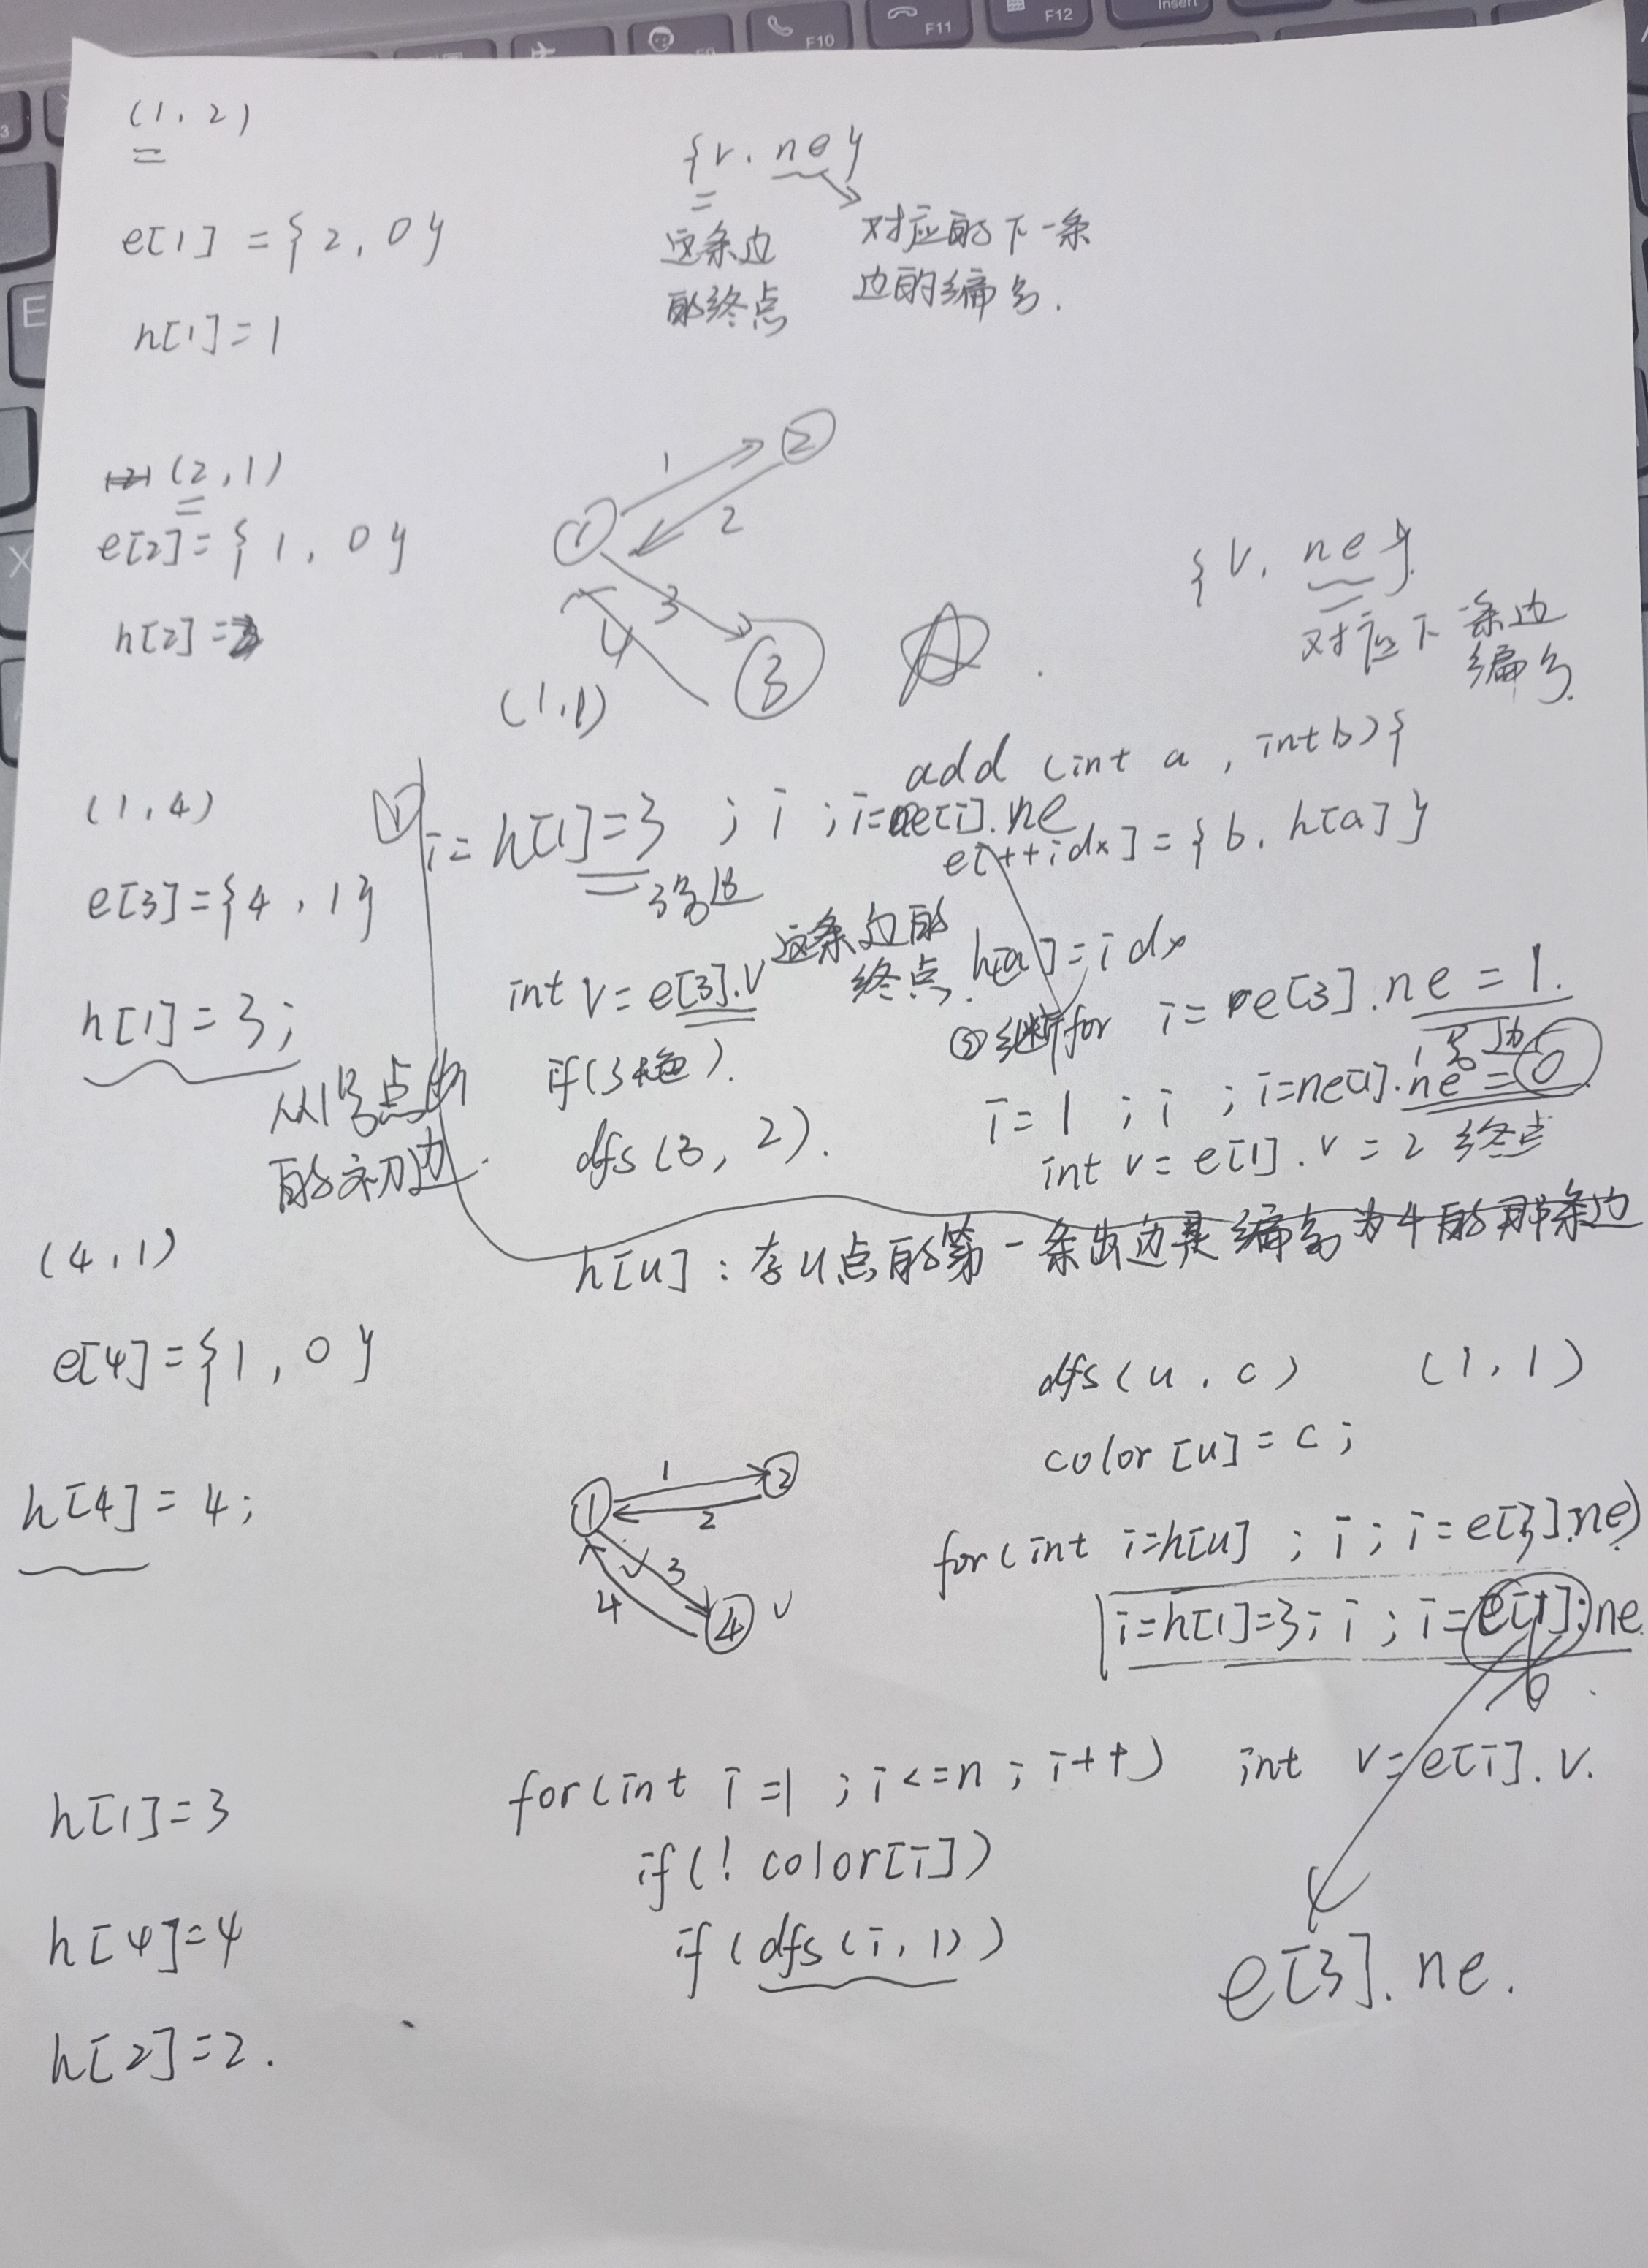 F10
F11
F12
Insert
E
X
(1, 2)
e[1] = {2, 0}
h[1] = 1
{v, ne}
这条边
的终点
对应的下一条
边的编号.
(2, 1)
e[2] = {1, 0}
h[2] = 2
1
2
2
1
3
4
3
(1,1)
{v, ne}
对应下一条边
编号.
add (int a, int b){
e[++idx] = {b, h[a]}
h[a] = idx
(1, 4)
e[3] = {4, 1}
h[1] = 3;
从1号点
的初边.
i = h[1] = 3 ; i ; i = e[i].ne
3号边
int v = e[3].v 这条边的
终点.
if(3 色).
dfs(3, 2).
② 继 for i = e[3].ne = 1.
1号边
i = 1 ; i ; i = ne[1].ne = 0
int v = e[1].v = 2 终点
h[u] : 存u点的第一条出边是编号为4的那条边
(4, 1)
e[4] = {1, 0}
h[4] = 4;
1
1
2
2
3
4
4
dfs(u, c) (1, 1)
color[u] = c;
for(int i=h[u] ; i ; i = e[3].ne)
i=h[1]=3; i ; i = e[i].ne
int v = e[i].v.
e[3].ne.
for(int i=1 ; i<=n ; i++)
if(! color[i])
if(dfs(i, 1))
h[1]=3
h[4]=4
h[2]=2.